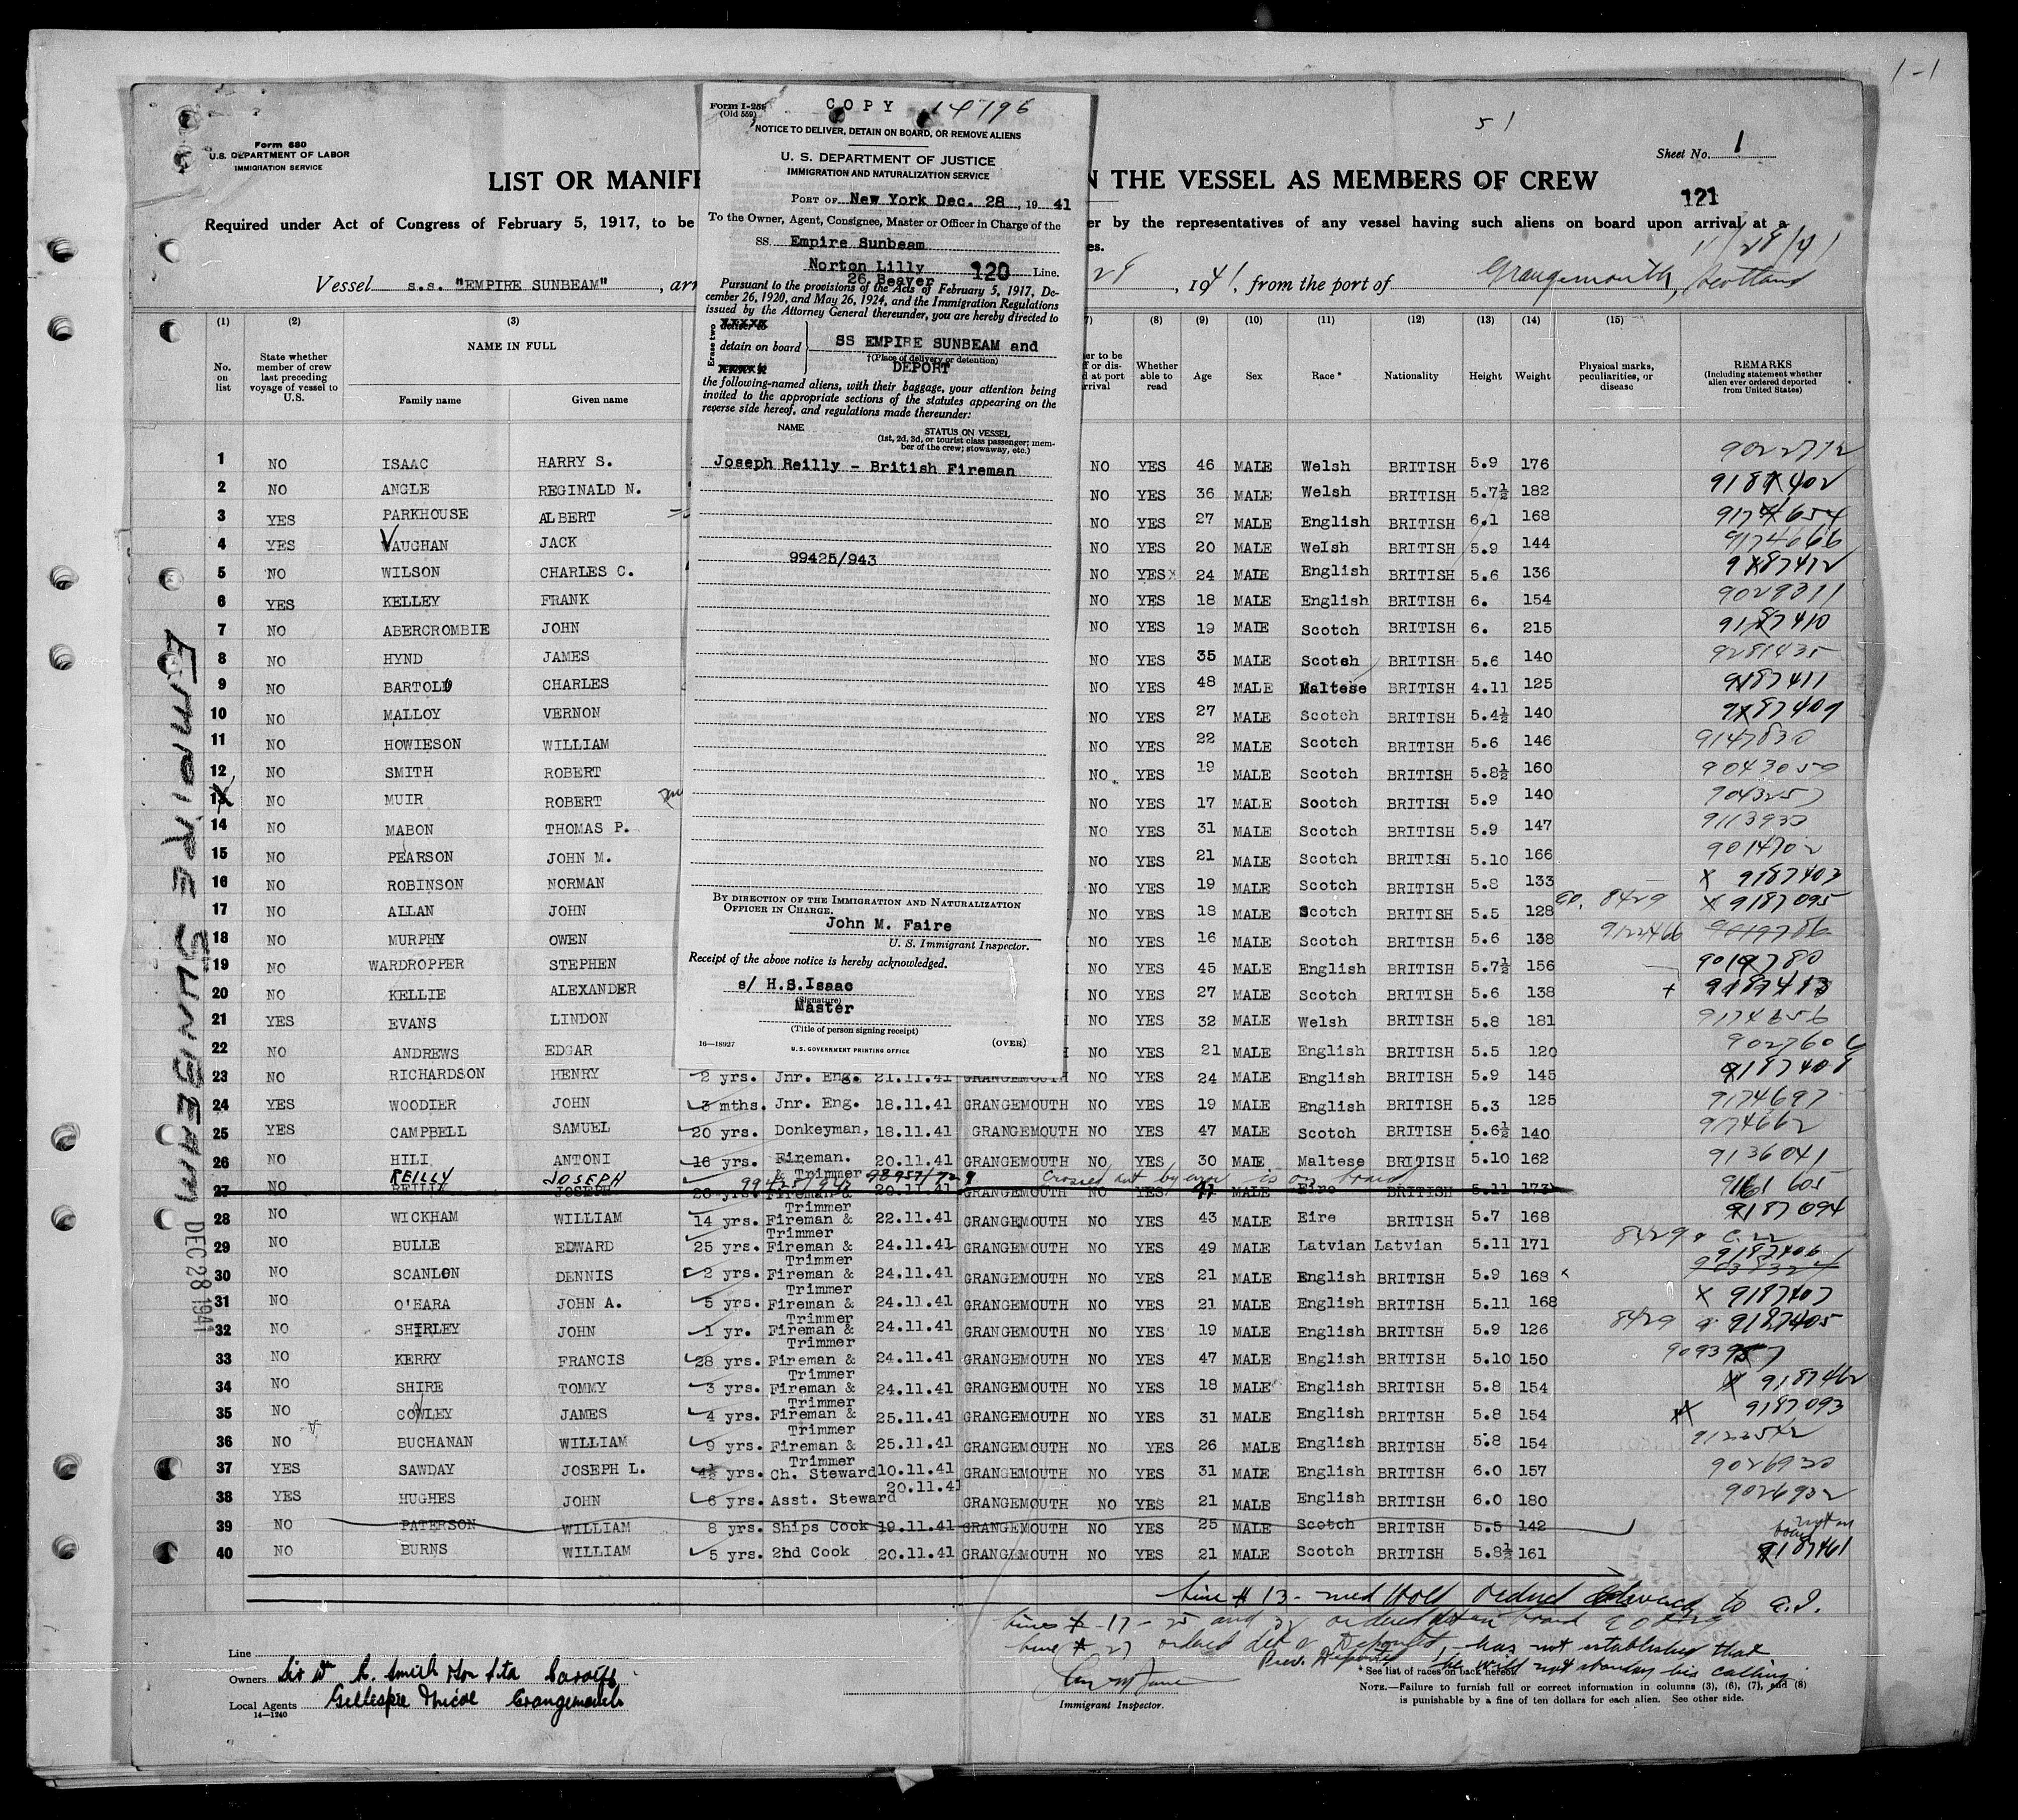 1-1
Form 680
U.S. DEPARTMENT OF LABOR
IMMIGRATION SERVICE
51
Sheet No. 1
LIST OR MANIFE
N THE VESSEL AS MEMBERS OF CREW
121
Required under Act of Congress of February 5, 1917, to be
er by the representatives of any vessel having such aliens on board upon arrival at a
es.
Vessel s.s. "EMPIRE SUNBEAM", arr
, 1941, from the port of Grangemouth, Scotland
Form I-259
(Old 559)
COPY 14196
NOTICE TO DELIVER, DETAIN ON BOARD, OR REMOVE ALIENS
U. S. DEPARTMENT OF JUSTICE
IMMIGRATION AND NATURALIZATION SERVICE
PORT OF New York Dec. 28, 1941
To the Owner, Agent, Consignee, Master or Officer in Charge of the
SS. Empire Sunbeam
Norton Lilly 120 Line.
26 Beaver
Pursuant to the provisions of the Acts of February 5, 1917, De-
cember 26, 1920, and May 26, 1924, and the Immigration Regulations
issued by the Attorney General thereunder, you are hereby directed to
Erase two
deliver to
detain on board
SS EMPIRE SUNBEAM and
†(Place of delivery or detention)
DEPORT
the following-named aliens, with their baggage, your attention being
invited to the appropriate sections of the statutes appearing on the
reverse side hereof, and regulations made thereunder:
NAME
STATUS ON VESSEL
(1st, 2d, 3d, or tourist class passenger; mem-
ber of the crew; stowaway, etc.)
Joseph Reilly - British Fireman
99425/943
BY DIRECTION OF THE IMMIGRATION AND NATURALIZATION
OFFICER IN CHARGE.
John M. Faire
U. S. Immigrant Inspector.
Receipt of the above notice is hereby acknowledged.
s/ H.S.Isaac
(Signature)
Master
(Title of person signing receipt)
16—18927
U.S. GOVERNMENT PRINTING OFFICE
(OVER)
(1) (2) (3) (8) (9) (10) (11) (12) (13) (14) (15)
No. on list
State whether member of crew last preceding voyage of vessel to U.S.
NAME IN FULL
Family name
Given name
Whether able to read
Age
Sex
Race *
Nationality
Height
Weight
Physical marks, peculiarities, or disease
REMARKS
(Including statement whether alien ever ordered deported from United States)
1 NO ISAAC HARRY S. NO YES 46 MALE Welsh BRITISH 5.9 176
2 NO ANGLE REGINALD N. NO YES 36 MALE Welsh BRITISH 5.7½ 182
3 YES PARKHOUSE ALBERT NO YES 27 MALE English BRITISH 6.1 168
4 YES VAUGHAN JACK NO YES 20 MALE Welsh BRITISH 5.9 144 9174666
5 NO WILSON CHARLES C. NO YES 24 MALE English BRITISH 5.6 136 9187412
6 YES KELLEY FRANK NO YES 18 MALE English BRITISH 6. 154 9029311
7 NO ABERCROMBIE JOHN NO YES 19 MALE Scotch BRITISH 6. 215 9187410
8 NO HYND JAMES NO YES 35 MALE Scotch BRITISH 5.6 140 9281435
9 NO BARTOLO CHARLES NO YES 48 MALE Maltese BRITISH 4.11 125 9187411
10 NO MALLOY VERNON NO YES 27 MALE Scotch BRITISH 5.4½ 140 9187409
11 NO HOWIESON WILLIAM NO YES 22 MALE Scotch BRITISH 5.6 146 9147830
12 NO SMITH ROBERT NO YES 19 MALE Scotch BRITISH 5.8½ 160 9043059
13 NO MUIR ROBERT NO YES 17 MALE Scotch BRITISH 5.9 140 9043257
14 NO MABON THOMAS P. NO YES 31 MALE Scotch BRITISH 5.9 147 9113930
15 NO PEARSON JOHN M. NO YES 21 MALE Scotch BRITISH 5.10 166 9014702
16 NO ROBINSON NORMAN NO YES 19 MALE Scotch BRITISH 5.8 133 X 9187403
17 NO ALLAN JOHN NO YES 18 MALE Scotch BRITISH 5.5 128 8429 X 9187095
18 NO MURPHY OWEN NO YES 16 MALE Scotch BRITISH 5.6 138 9122466
19 NO WARDROPPER STEPHEN NO YES 45 MALE English BRITISH 5.7½ 156 9019780
20 NO KELLIE ALEXANDER NO YES 27 MALE Scotch BRITISH 5.6 138
21 YES EVANS LINDON NO YES 32 MALE Welsh BRITISH 5.8 181 9174656
22 NO ANDREWS EDGAR NO YES 21 MALE English BRITISH 5.5 120
23 NO RICHARDSON HENRY 2 yrs. Jnr. Eng. 21.11.41 GRANGEMOUTH NO YES 24 MALE English BRITISH 5.9 145 9187408
24 YES WOODIER JOHN 3 mths. Jnr. Eng. 18.11.41 GRANGEMOUTH NO YES 19 MALE English BRITISH 5.3 125 9174697
25 YES CAMPBELL SAMUEL 20 yrs. Donkeyman, 18.11.41 GRANGEMOUTH NO YES 47 MALE Scotch BRITISH 5.6½ 140 9174662
26 NO HILI ANTONI 16 yrs. Fireman. & Trimmer 20.11.41 GRANGEMOUTH NO YES 30 MALE Maltese BRITISH 5.10 162 9136041
REILLY JOSEPH 99425/943 98957/729 Crossed out by error is on board
27 NO REILLY JOSEPH 20 yrs. Fireman & Trimmer 20.11.41 GRANGEMOUTH NO YES 41 MALE Eire BRITISH 5.11 173 9161605
28 NO WICKHAM WILLIAM 14 yrs. Fireman & Trimmer 22.11.41 GRANGEMOUTH NO YES 43 MALE Eire BRITISH 5.7 168 9187094
29 NO BULLE EDWARD 25 yrs. Fireman & Trimmer 24.11.41 GRANGEMOUTH NO YES 49 MALE Latvian Latvian 5.11 171 8429 9187406
30 NO SCANLON DENNIS 2 yrs. Fireman & Trimmer 24.11.41 GRANGEMOUTH NO YES 21 MALE English BRITISH 5.9 168
31 NO O'HARA JOHN A. 5 yrs. Fireman & Trimmer 24.11.41 GRANGEMOUTH NO YES 21 MALE English BRITISH 5.11 168 X 9187407
32 NO SHIRLEY JOHN 1 yr. Fireman & Trimmer 24.11.41 GRANGEMOUTH NO YES 19 MALE English BRITISH 5.9 126 8429 9187405
33 NO KERRY FRANCIS 28 yrs. Fireman & Trimmer 24.11.41 GRANGEMOUTH NO YES 47 MALE English BRITISH 5.10 150
34 NO SHIRE TOMMY 3 yrs. Fireman & Trimmer 24.11.41 GRANGEMOUTH NO YES 18 MALE English BRITISH 5.8 154 9187462
35 NO COWLEY JAMES 4 yrs. Fireman & Trimmer 25.11.41 GRANGEMOUTH NO YES 31 MALE English BRITISH 5.8 154 9187093
36 NO BUCHANAN WILLIAM 9 yrs. Fireman & Trimmer 25.11.41 GRANGEMOUTH NO YES 26 MALE English BRITISH 5.8 154
37 YES SAWDAY JOSEPH L. 4½ yrs. Ch. Steward 10.11.41 GRANGEMOUTH NO YES 31 MALE English BRITISH 6.0 157 9026930
38 YES HUGHES JOHN 6 yrs. Asst. Steward 20.11.41 GRANGEMOUTH NO YES 21 MALE English BRITISH 6.0 180 9026932
39 NO PATERSON WILLIAM 8 yrs. Ships Cook 19.11.41 GRANGEMOUTH NO YES 25 MALE Scotch BRITISH 5.5 142 not on board
40 NO BURNS WILLIAM 5 yrs. 2nd Cook 20.11.41 GRANGEMOUTH NO YES 21 MALE Scotch BRITISH 5.8½ 161 9187461
EMPIRE SUNBEAM
DEC 28 1941
Line # 13 - med Hold ordered removed to E.I.
Line # 27 ordered det & Deported, has not established that
he will not abandon his calling.
Prev. Deported
Line
Owners
Local Agents Gillespie Nicol Grangemouth
14—1240
Immigrant Inspector.
* See list of races on back hereof.
NOTE.—Failure to furnish full or correct information in columns (3), (6), (7), and (8)
is punishable by a fine of ten dollars for each alien. See other side.